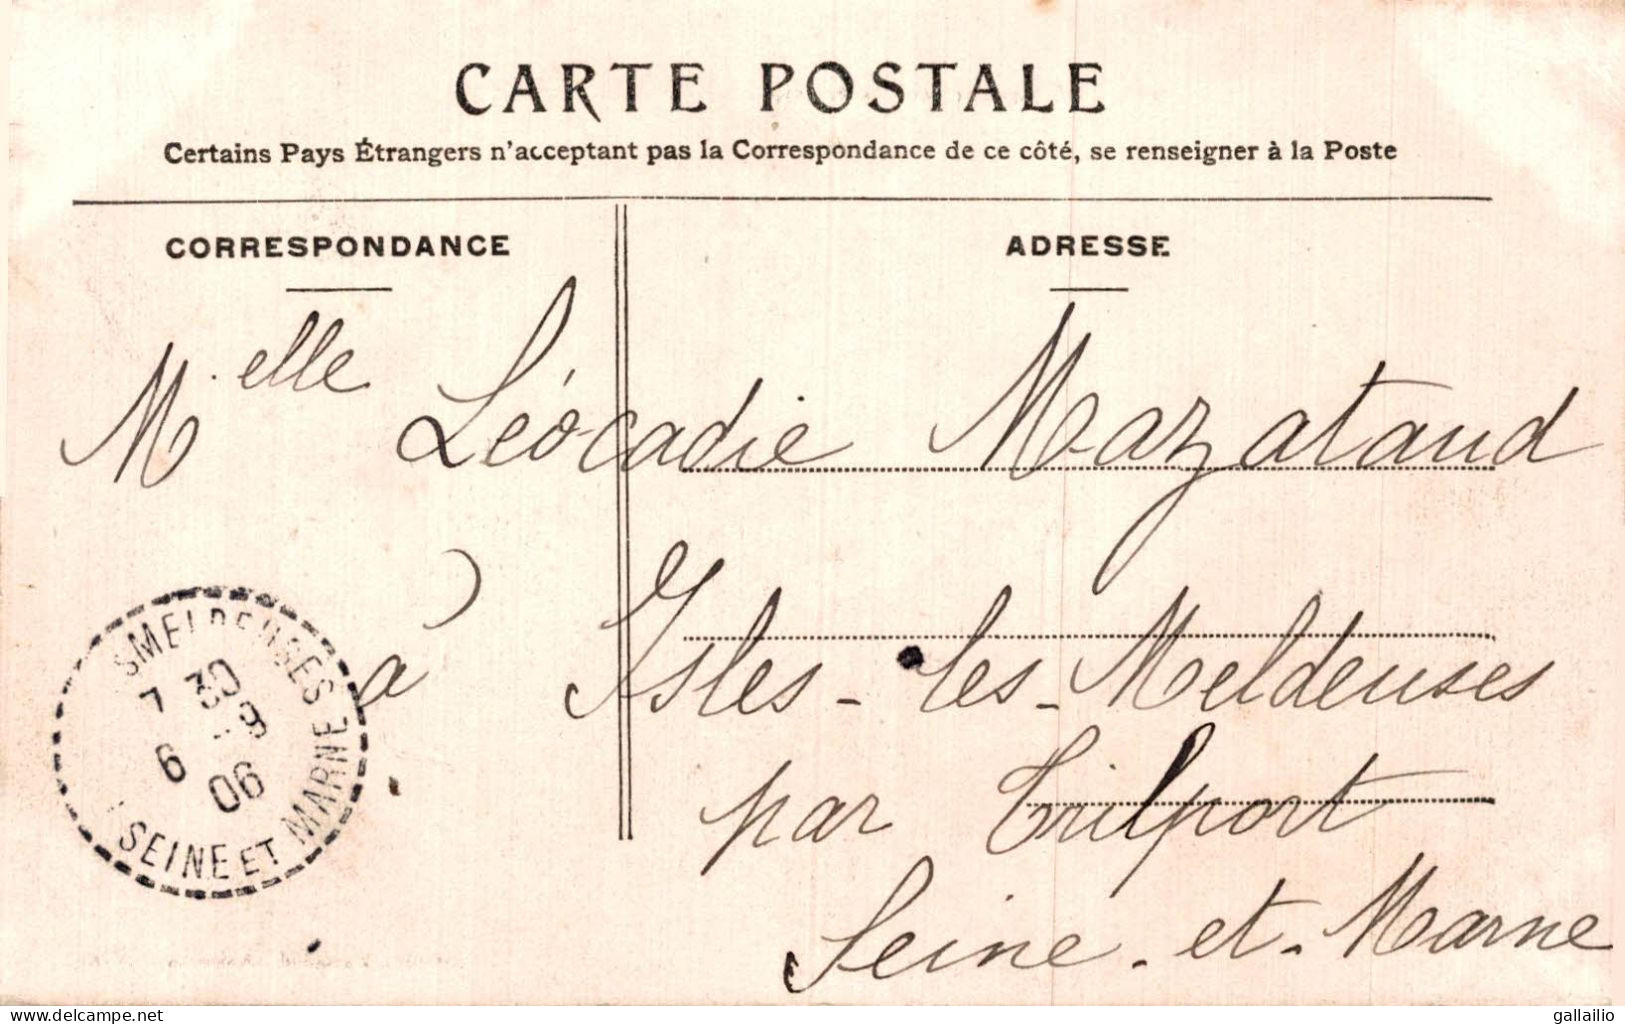 CARTE POSTALE
Certains Pays Étrangers n'acceptant pas la Correspondance de ce côté, se renseigner à la Poste
CORRESPONDANCE
ADRESSE
Melle Léocadie Mazataud
à Isles-les-Meldeuses
par Trilport
Seine-et-Marne
SMELDEUSES
7 30
6
06
SEINE ET MARNE
www.delcampe.net
gallailio